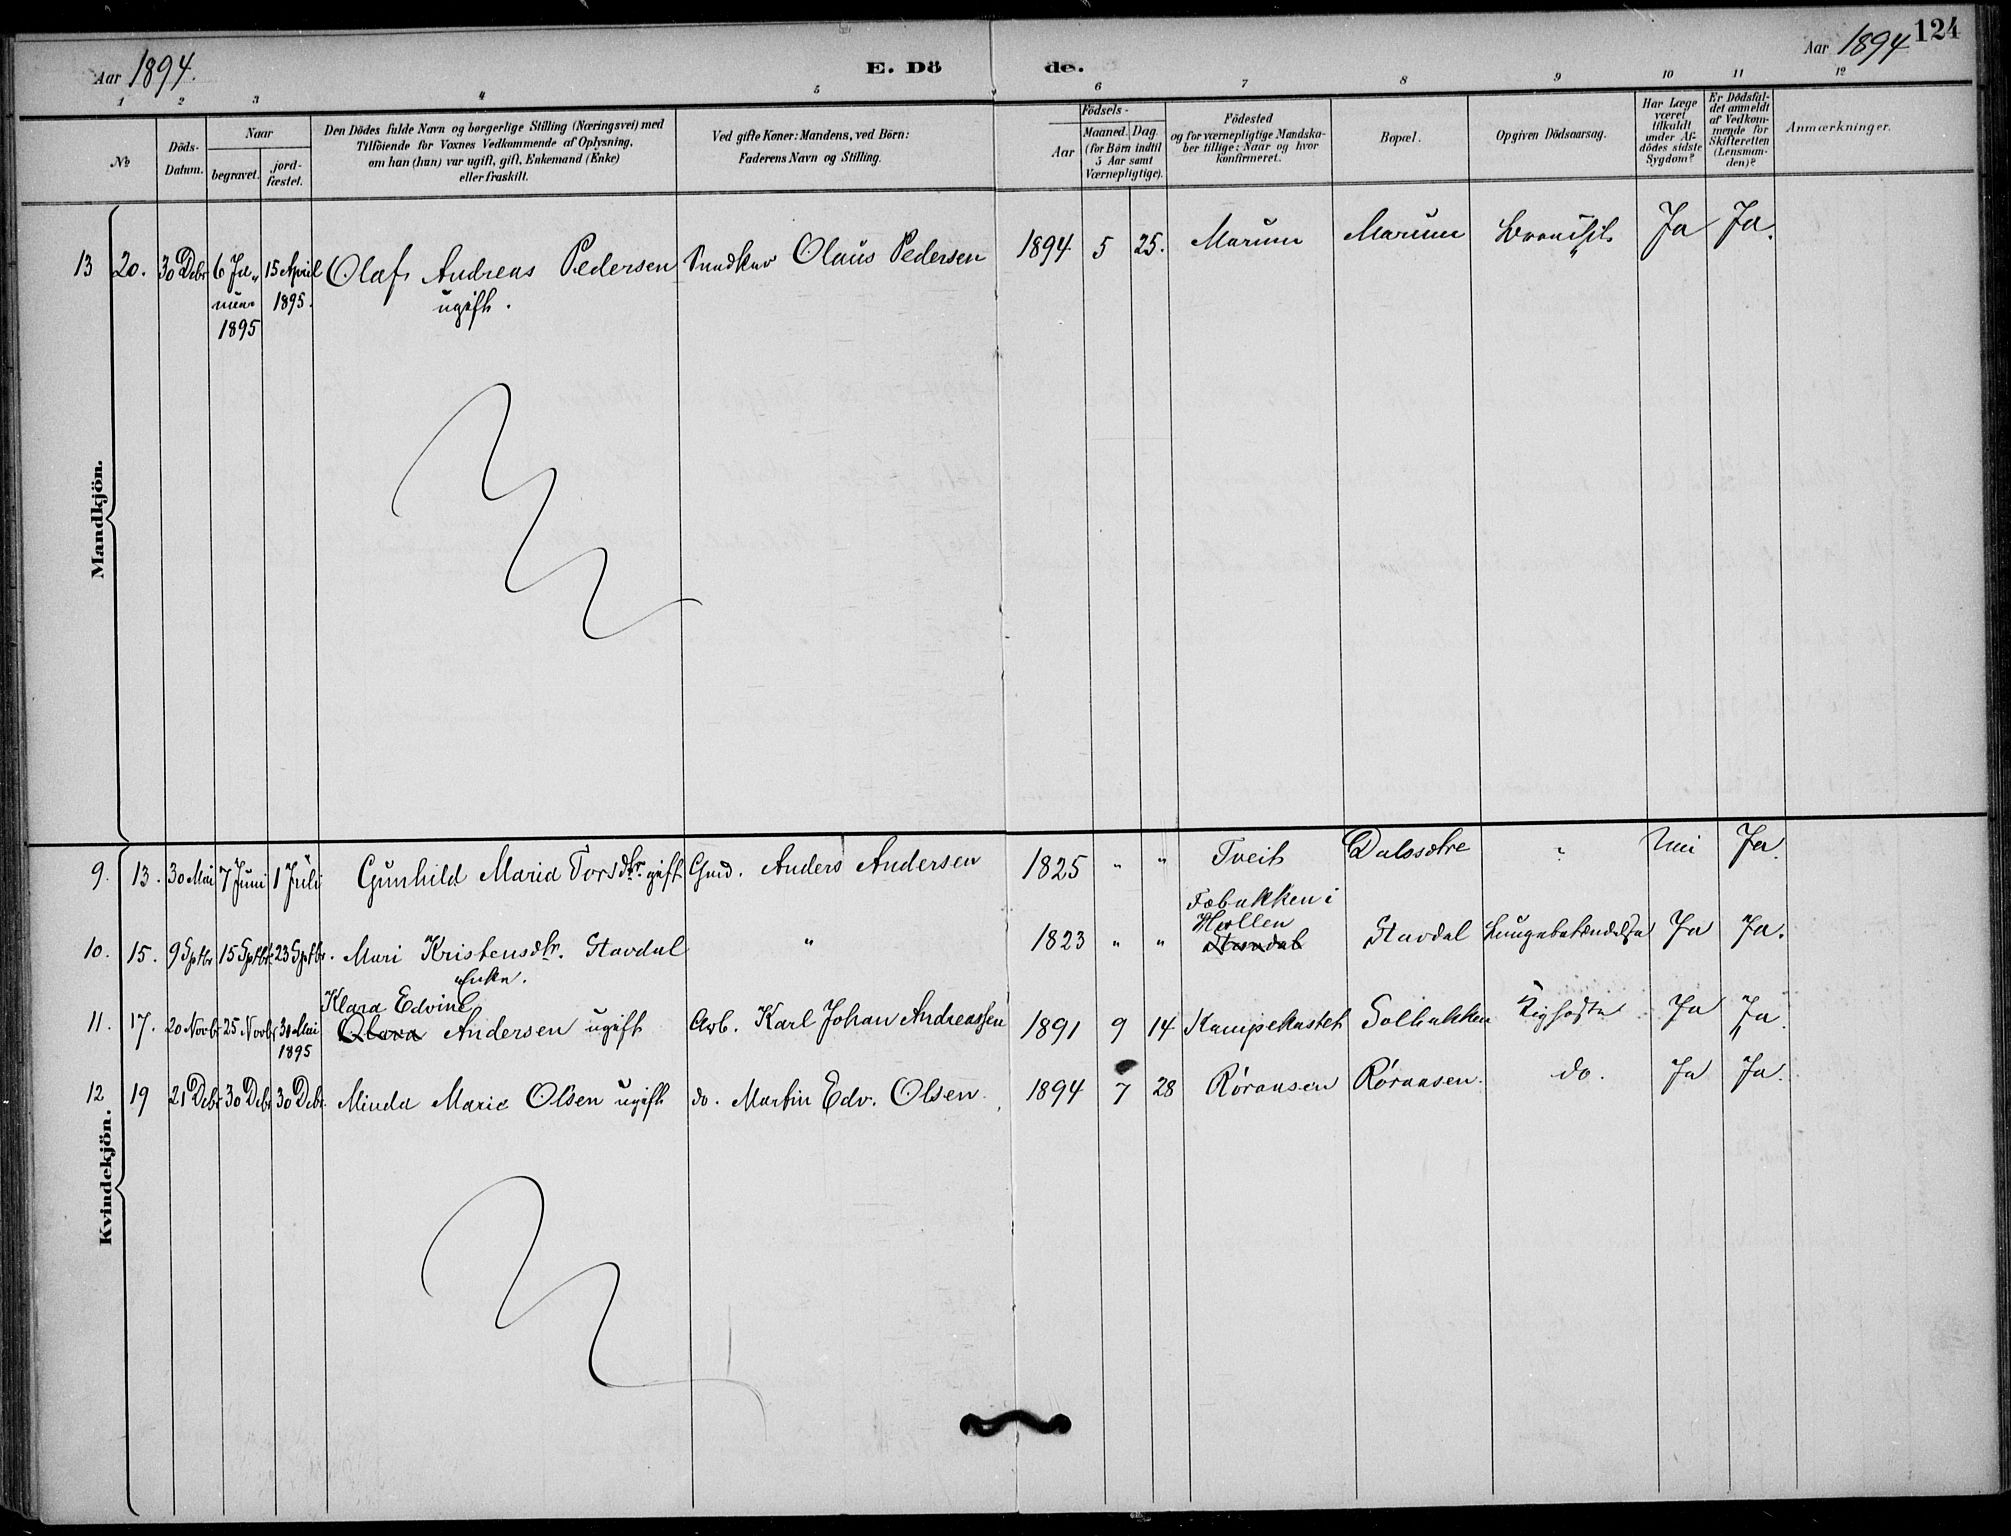 124
Aar 1894.
E. Dö de.
Aar 1894
1 2 3 4 5 6 7 8 9 10 11 12
№
Döds-Datum.
Naar
begravet.
jord-fæstet.
Den Dödes fulde Navn og borgerlige Stilling (Næringsvei) med
Tilföiende for Voxnes Vedkommende af Oplysning,
om han (hun) var ugift, gift, Enkemand (Enke)
eller fraskilt.
Ved gifte Koner: Mandens, ved Börn:
Faderens Navn og Stilling.
Födsels-
Aar
Maaned. Dag.
(for Börn indtil
5 Aar samt
Værnepligtige).
Födested
og for værnepligtige Mandska-
ber tillige: Naar og hvor
konfirmeret.
Bopæl.
Opgiven Dödsaarsag.
Har Læge
været
tilkaldt
under Af-
dödes sidste
Sygdom?
Er Dödsfal-
det anmeldt
af Vedkom-
mende for
Skifteretten
(Lensman-
den)?
Anmærkninger.
Mandkjön.
13 20. 30 Debr 6 Ja- 15 April Olaf Andreas Pedersen Olaus Pedersen 1894 5 25. Marum Marum Ja Ja.
nuar 1895. ugift.
1895
Kvindekjön.
9. 13. 30 Mai 7 Juni 1 Juli Gunhild Maria Torsdtr. gift Gmd. Anders Andersen 1825 " " Tveit Dalssetre Nei Ja.
Febakken i
Hollen
10. 15. 9 Sptbr 15 Sptbr 23 Sptbr. Mari Kristensdtr. Stavdal " 1823 " " Stavdal Lungebetændelse Ja Ja.
Enke.
Klara Edvine
11. 17. 20 Novbr 25 Novbr 30 Mai Clara Andersen ugift Arb. Karl Johan Andreassen 1891 9 14 Kampekastet Solbakken Kighoste Ja Ja.
1895
12 19 21 Debr 30 Debr 30 Debr. Minda Marie Olsen ugift do. Martin Edv. Olsen. 1894 7 28 Röraasen Röraasen. do. Ja Ja.